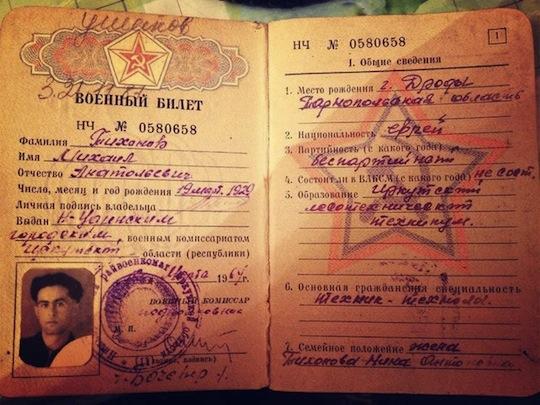 Ушаков
ВОЕННЫЙ БИЛЕТ
НЧ № 0580658
Фамилия Тихонов
Имя Михаил
Отчество Анатольевич
Число, месяц и год рождения 1929
Личная подпись владельца
Выдан
городским военным комиссариатом
области (республики)
марта 1967 г.
ВОЕННЫЙ КОМИССАР
подполковник
М. П.
НЧ № 0580658
1
I. Общие сведения
1. Место рождения г. Броды
Тарнопольская область
2. Национальность еврей
3. Партийность (с какого года)
беспартийный
4. Состоит ли в ВЛКСМ (с какого года) не сост.
5. Образование Иркутский
лесотехнический
техникум.
6. Основная гражданская специальность
техник-технолог.
7. Семейное положение жена
Тихонова Нина Антоновна